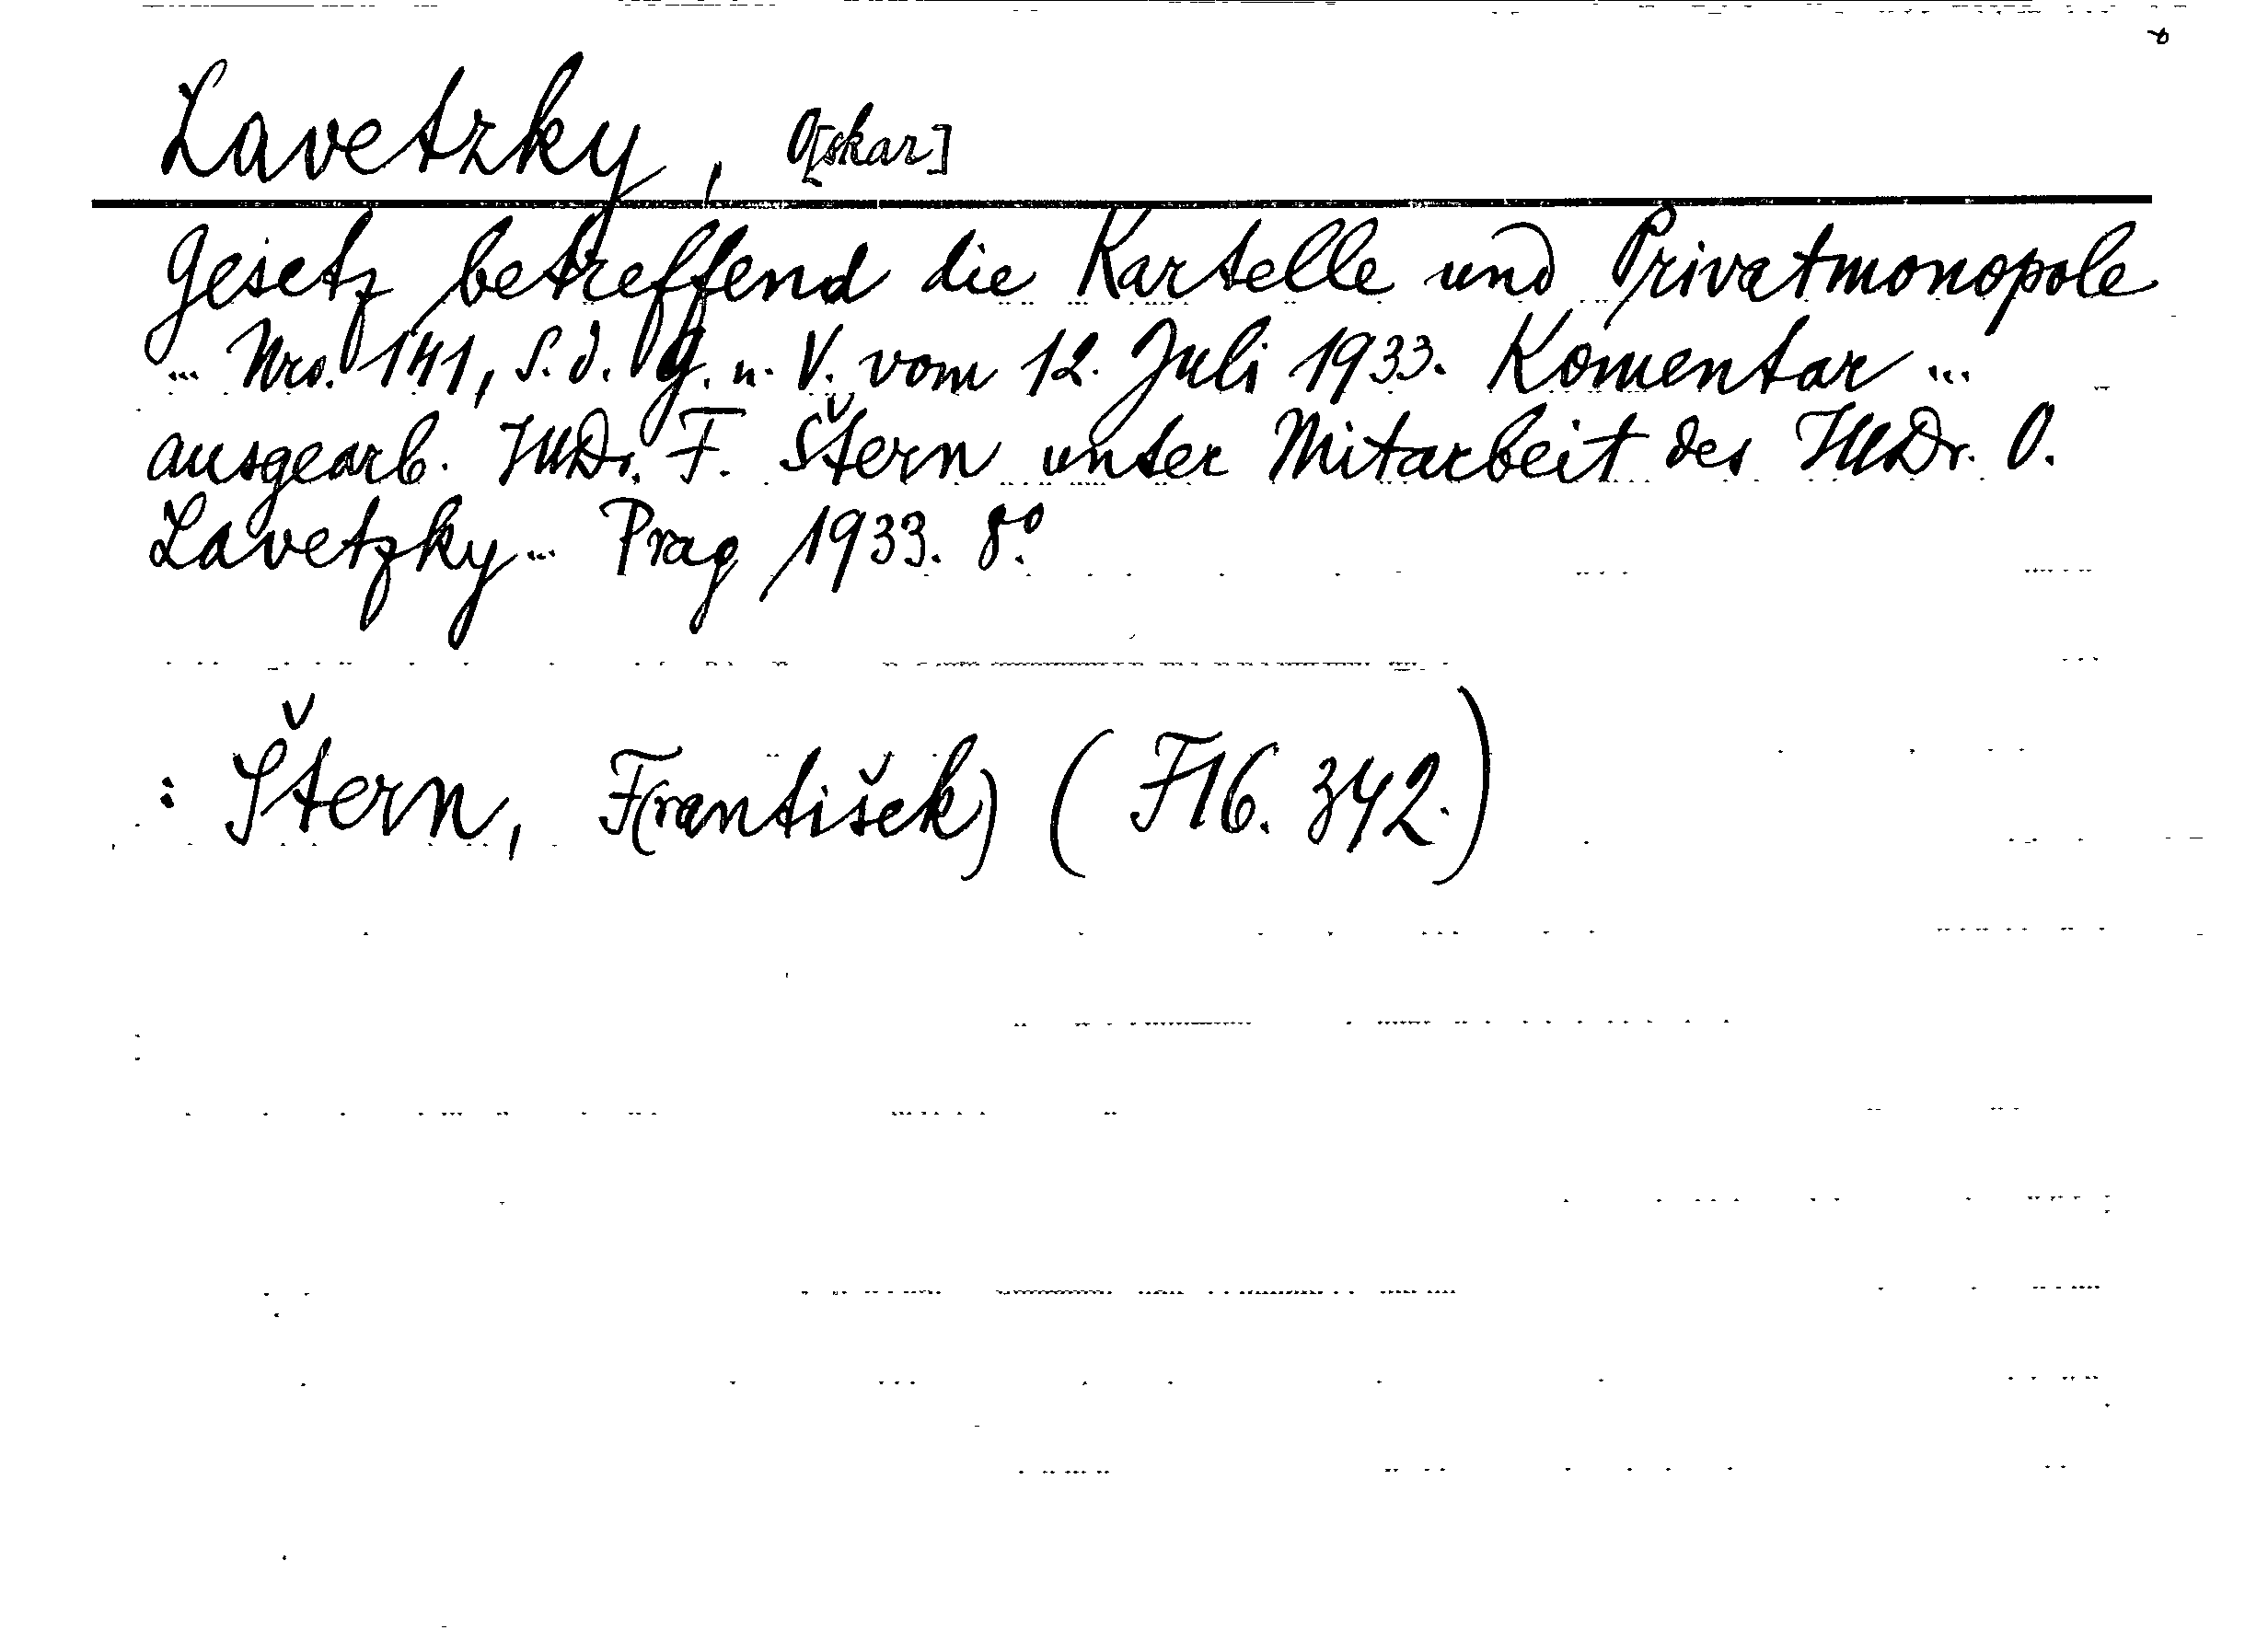 Lavetzky, O[skar]
Gesetz betreffend die Kartelle und Privatmonopole
... Nro. 141, S. d. G. u. V. vom 12. Juli 1933. Komentar ...
ausgearb. JUDr. F. Štern unter Mitarbeit des JUDr. O.
Lavetzky... Prag, 1933. 8°.
: Štern, F(rantišek) (F16. 342.)